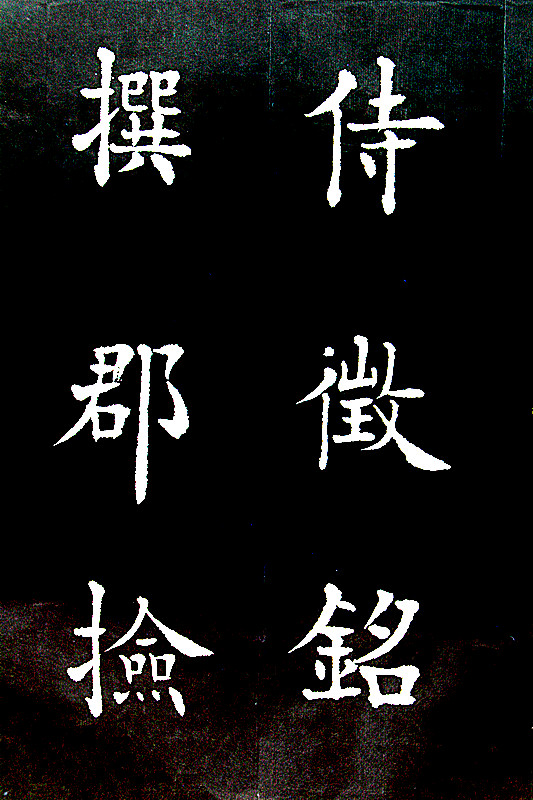 侍徵銘
撰郡撿